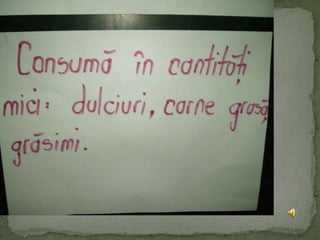 Consumă în cantităţi
mici: dulciuri, carne grasă,
grăsimi.